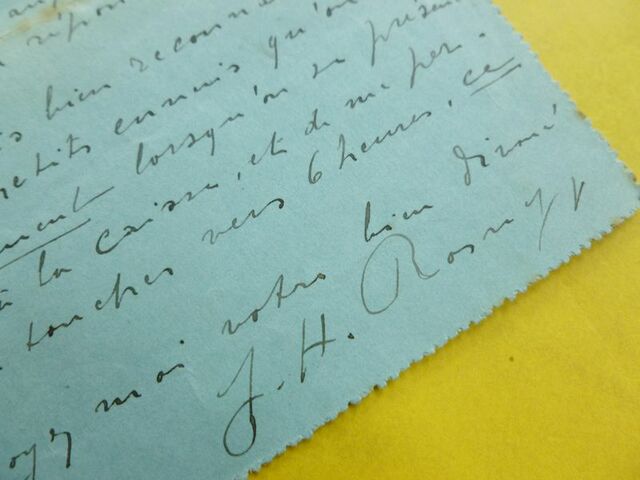 répon
bien reconn
petits ennuis qu'on
ment lorsqu'on se présen
à la caisse, et de me per-
toucher vers 6 heures, ce
oyez moi votre bien dévoué
J. H. Rosny